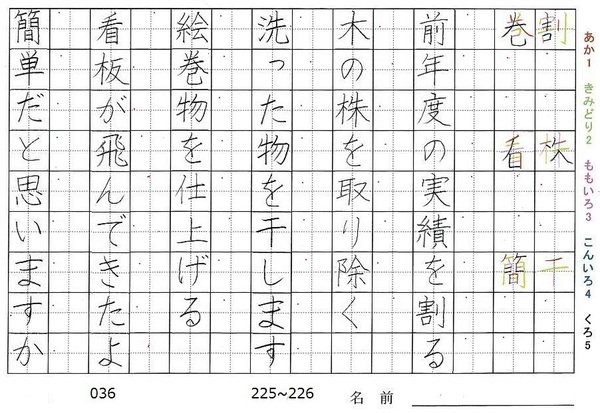 あか1 きみどり2 ももいろ3 こんいろ4 くろ5
割 株 干
巻 看 簡
前年度の実績を割る
木の株を取り除く
洗った物を干します
絵巻物を仕上げる
看板が飛んできたよ
簡単だと思いますか
036 225~226 名前